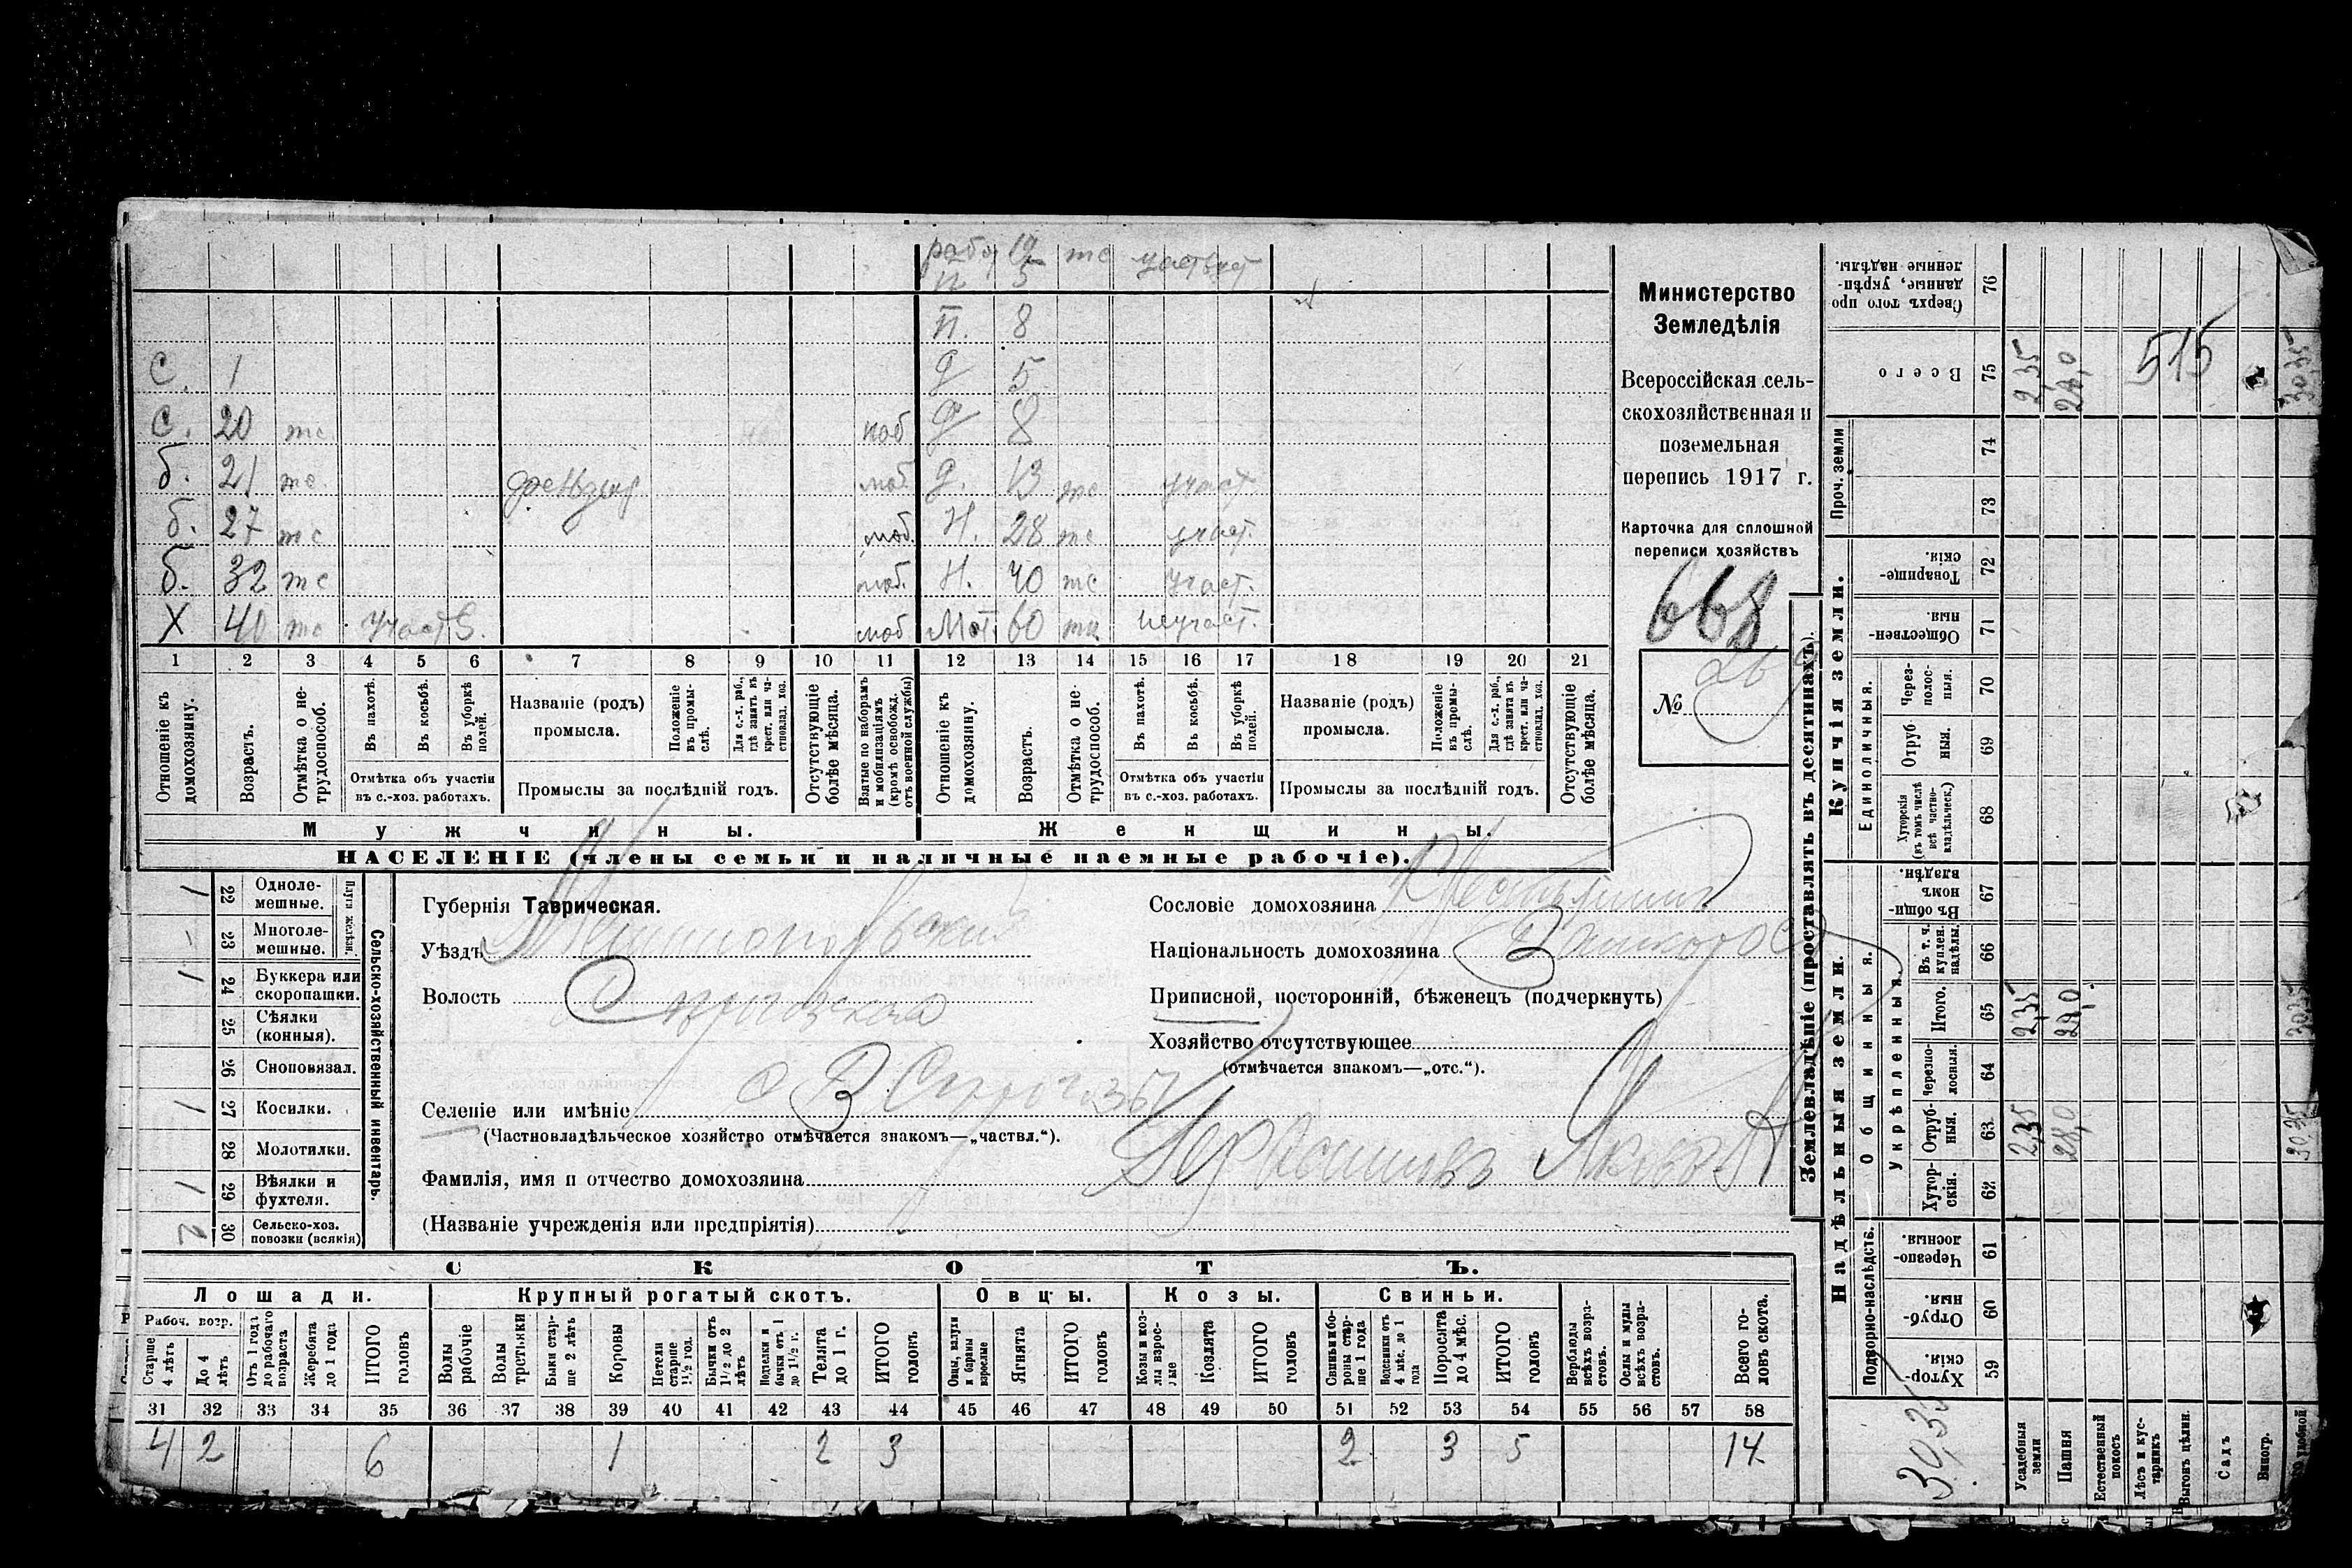 рабо 19 тс участвует
п 5
п. 8
с. 1 д 5
с. 20 тс моб д 8
б. 21 тс моб. д. 13 тс участ.
б. 27 тс моб. н. 28 тс участ.
б. 32 тс моб. н. 40 тс участ.
Х 40 тс участв. моб Мат. 60 неучаст.
1 2 3 4 5 6 7 8 9 10 11 12 13 14 15 16 17 18 19 20 21
Отношеніе къ домохозяину.
Возрастъ.
Отмѣтка о нетрудоспособ.
Въ пахотѣ.
Въ косьбѣ.
Въ уборкѣ полей.
Отмѣтка объ участіи въ с.-хоз. работахъ.
Названіе (родъ) промысла.
Положеніе въ промыслѣ.
Для с.-х. раб., гдѣ занятъ въ крест. или частновлад. хоз.
Промыслы за послѣдній годъ.
Отсутствующіе болѣе мѣсяца.
Взятые по наборамъ и мобилизаціямъ (кромѣ освобожд. отъ военной службы)
Отношеніе къ домохозяину.
Возрастъ.
Отмѣтка о нетрудоспособ.
Въ пахотѣ.
Въ косьбѣ.
Въ уборкѣ полей.
Отмѣтка объ участіи въ с.-хоз. работахъ.
Названіе (родъ) промысла.
Положеніе въ промыслѣ.
Для с.-х. раб., гдѣ занята въ крест. или частновлад. хоз.
Промыслы за послѣдній годъ.
Отсутствующіе болѣе мѣсяца.
Мужчины. Женщины.
НАСЕЛЕНІЕ (члены семьи и наличные наемные рабочіе).
Министерство
Земледѣлія
Всероссійская сель-
скохозяйственная и
поземельная
перепись 1917 г.
Карточка для сплошной
переписи хозяйствъ
668
№ 26
22 Однолемешные. 1
23 Многолемешные.
Плуги желѣзн.
24 Буккера или скоропашки. 1
25 Сѣялки (конныя).
26 Сноповязал.
27 Косилки. 1
28 Молотилки.
29 Вѣялки и фухтеля. 1
30 Сельско-хоз. повозки (всякія) 2
Сельско-хозяйственный инвентарь.
Губернія Таврическая.
Уѣздъ Мелитопольскій
Волость
Селеніе или имѣніе
(Частновладѣльческое хозяйство отмѣчается знакомъ—„частвл.“).
Фамилія, имя и отчество домохозяина Яковъ
(Названіе учрежденія или предпріятія)
Сословіе домохозяина Крестьянинъ
Національность домохозяина
Приписной, посторонній, бѣженецъ (подчеркнуть)
Хозяйство отсутствующее
(отмѣчается знакомъ—„отс.“).
СКОТЪ.
Лошади. Крупный рогатый скотъ. Овцы. Козы. Свиньи.
Рабоч. возр.
Старше 4 лѣтъ
До 4 лѣтъ
Отъ 1 года до рабочаго возраста
Жеребята до 1 года
ИТОГО головъ
Волы рабочіе
Волы третьяки
Быки старше 2 лѣтъ
Коровы
Нетели старше 1½ год.
Бычки отъ 1½ до 2 лѣтъ
Подтелки и бычки отъ 1 до 1½ г.
Телята до 1 г.
ИТОГО головъ
Овцы, валухи и бараны взрослые
Ягнята
ИТОГО головъ
Козы и козлы взрослые
Козлята
ИТОГО головъ
Свиньи и боровы старше 1 года
Подсвинки отъ 4 мѣс. до 1 года
Поросята до 4 мѣс.
ИТОГО головъ
Верблюды всѣхъ возрастовъ.
Ослы и мулы всѣхъ возрастовъ.
Всего головъ скота.
31 32 33 34 35 36 37 38 39 40 41 42 43 44 45 46 47 48 49 50 51 52 53 54 55 56 57 58
4 2 6 1 2 3 2 3 5 14
Землевладѣніе (проставлять въ десятинахъ).
Надѣльныя земли. Купчія земли.
Подворно-наслѣдств. Общинныя. Укрѣпленныя. Единоличныя. Проч. земли
Хуторскія. 59
Отрубныя. 60
Черезполосныя. 61
Хуторскія. 62
Отрубныя. 63 2,35 28,0 30,35
Черезполосныя. 64
Итого. 65 2,35 28,0 30,35
Въ т. ч. куплен. надѣлы. 66
Въ общинномъ владѣн. 67
Хуторскія (въ томъ числѣ всѣ частновладѣльческ.) 68
Отрубныя. 69
Черезполосныя. 70
Общественныя. 71
Товарищескія. 72
73
74
Всего 75 2,35 28,0 515 30,35
Сверхъ того проданные, укрѣпленные надѣлы. 76
Усадебныя земли
Пашня
Естественный покосъ
Лѣсъ и кустарникъ
Выгонъ цѣлин.
Садъ
Виногр.
удобной
30,35